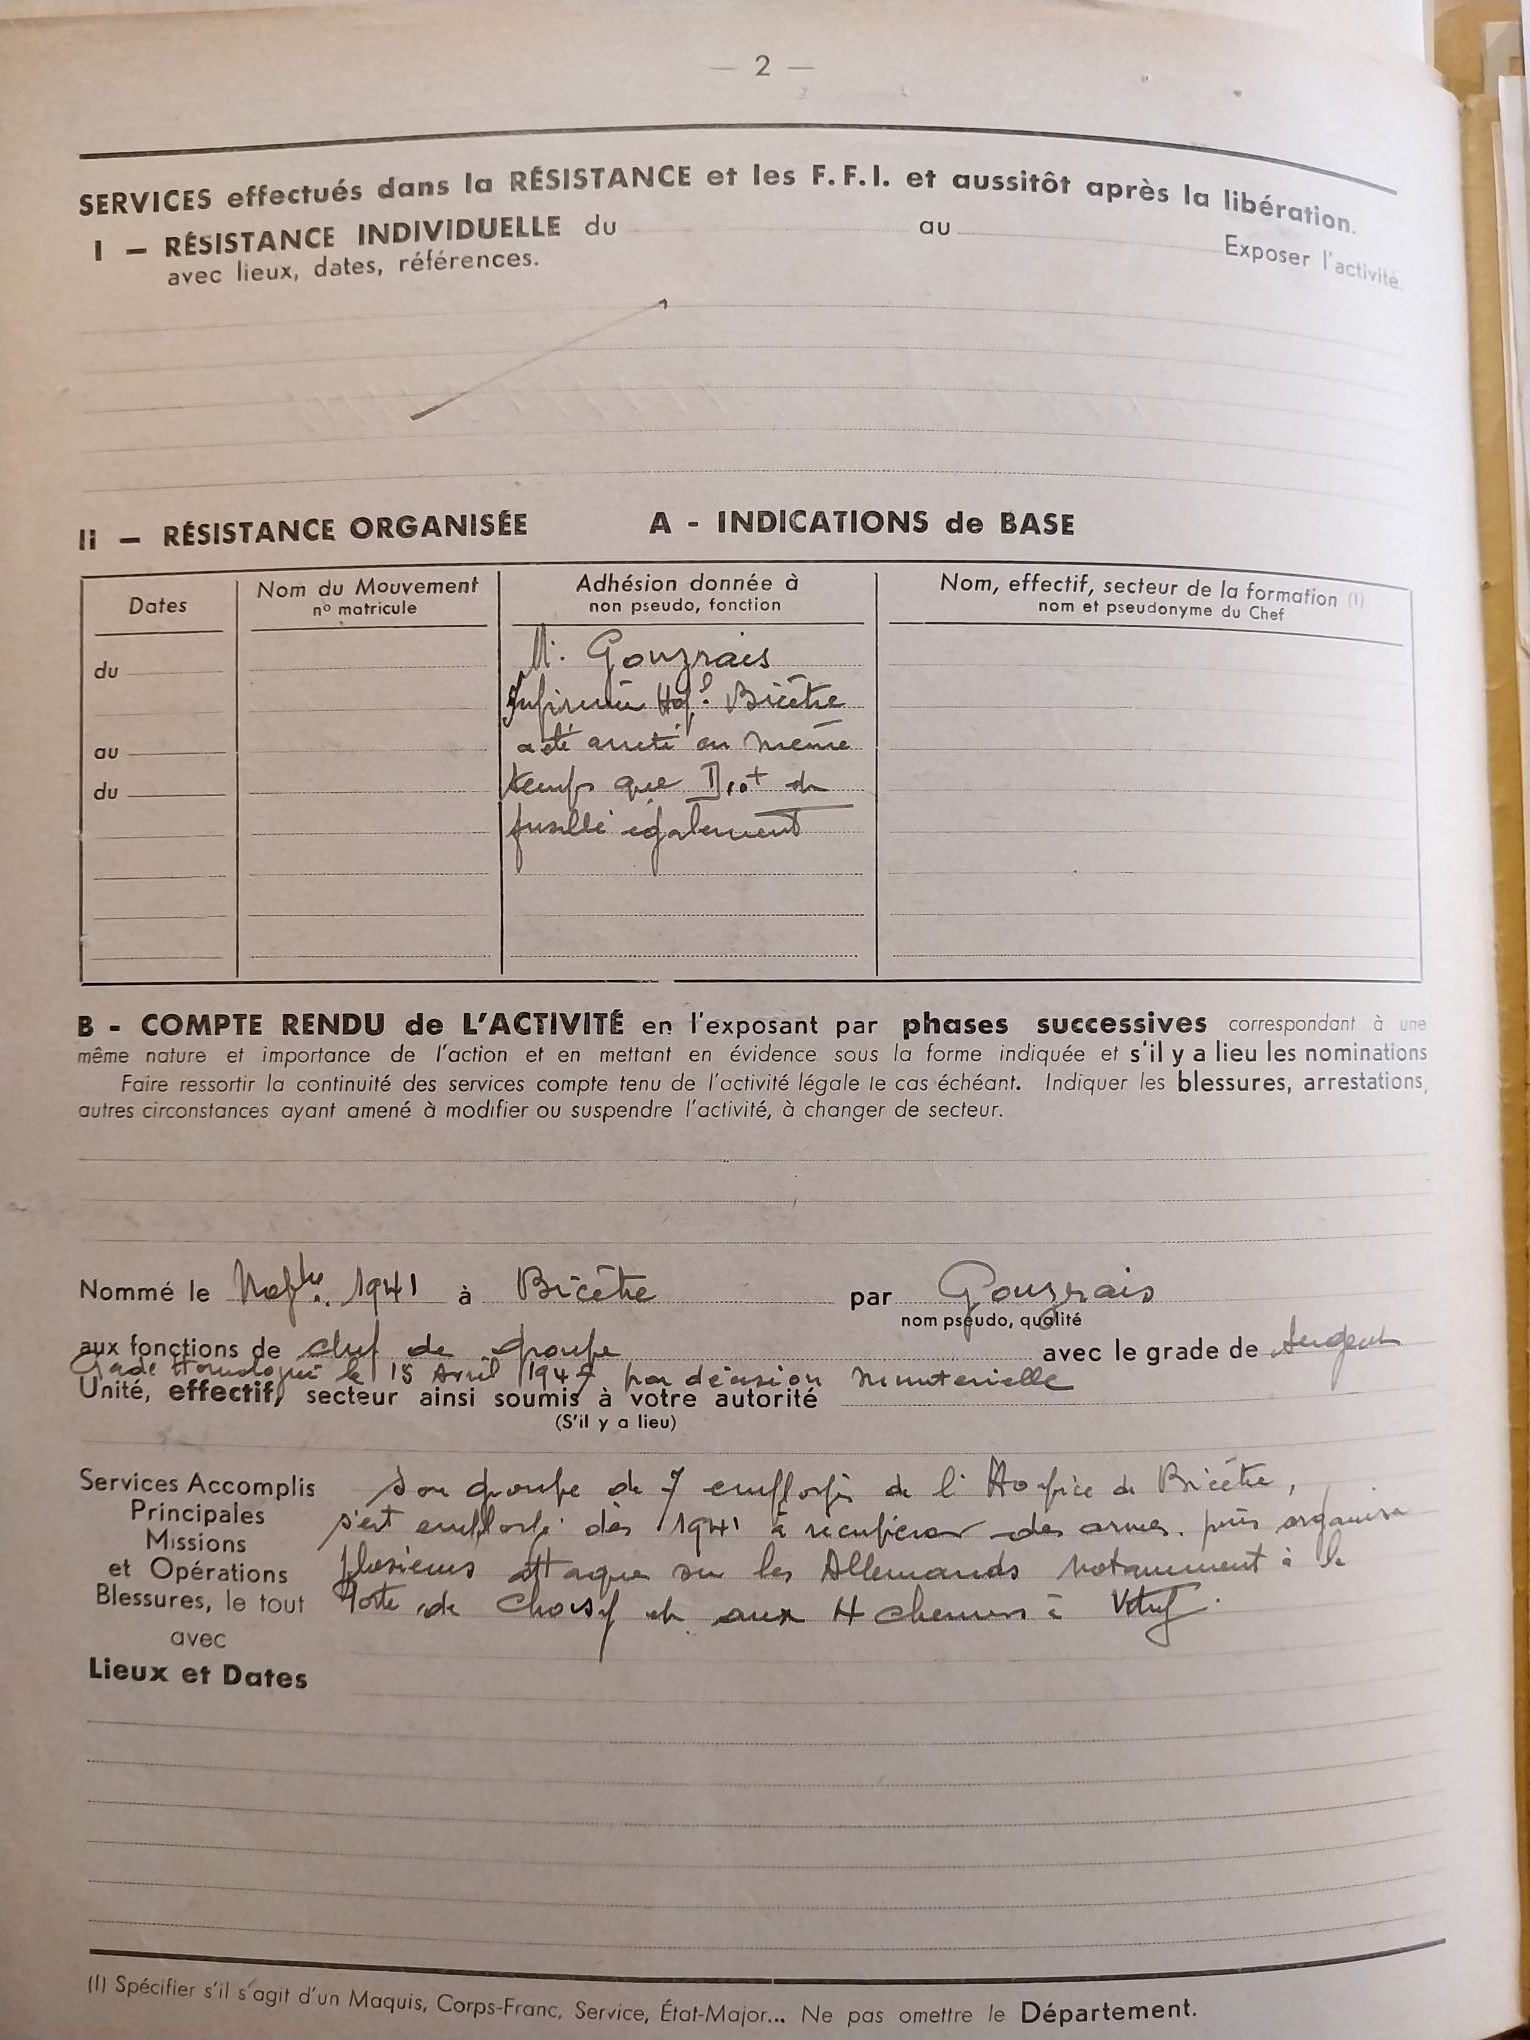 — 2 —
SERVICES effectués dans la RÉSISTANCE et les F.F.I. et aussitôt après la libération.
I — RÉSISTANCE INDIVIDUELLE du au Exposer l'activité
avec lieux, dates, références.
II — RÉSISTANCE ORGANISÉE A - INDICATIONS de BASE
Dates
Nom du Mouvement
n° matricule
Adhésion donnée à
non pseudo, fonction
Nom, effectif, secteur de la formation (1)
nom et pseudonyme du Chef
du
au
du
M. Gouzrais
Infirmier Hop.l Bicêtre
a été arrêté en même
temps que et
fusillé également
B - COMPTE RENDU de L'ACTIVITÉ en l'exposant par phases successives correspondant à une
même nature et importance de l'action et en mettant en évidence sous la forme indiquée et s'il y a lieu les nominations
Faire ressortir la continuité des services compte tenu de l'activité légale le cas échéant. Indiquer les blessures, arrestations,
autres circonstances ayant amené à modifier ou suspendre l'activité, à changer de secteur.
Nommé le 1941 à Bicêtre par Gouzrais
nom pseudo, qualité
aux fonctions de chef de groupe avec le grade de Sergent
Grade Homologué le 15 Avril 194 par décision ministérielle
Unité, effectif, secteur ainsi soumis à votre autorité
(S'il y a lieu)
Services Accomplis
Principales
Missions
et Opérations
Blessures, le tout
avec
Lieux et Dates
Son groupe de 7 employés de l'Hospice de Bicêtre,
s'est employé dès 1941 à récupérer des armes. puis organisa
plusieurs attaques sur les Allemands notamment à la
Porte de Choisy et aux 4 chemins à Vitry.
(1) Spécifier s'il s'agit d'un Maquis, Corps-Franc, Service, État-Major... Ne pas omettre le Département.